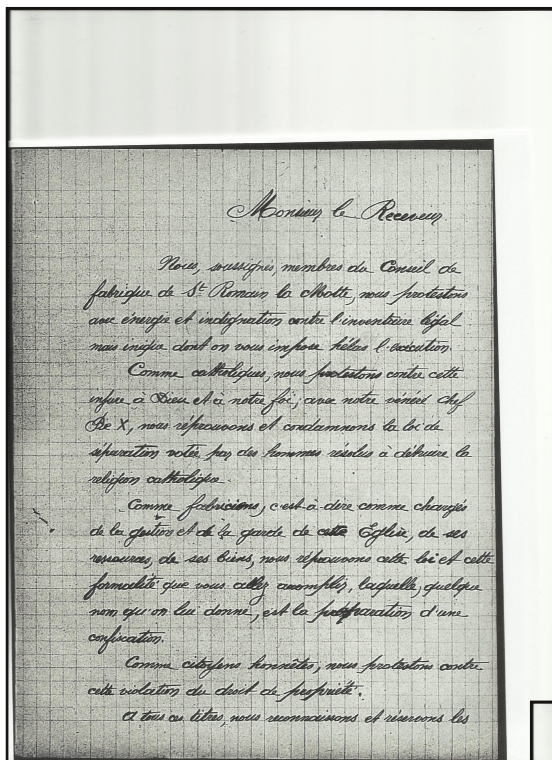 Monsieur le Receveur
Nous, soussignés, membres du Conseil de
fabrique de St Romain la Motte, nous protestons
avec énergie et indignation contre l'inventaire légal
mais inique dont on vous impose hélas l'exécution.
Comme catholiques, nous protestons contre cette
injure à Dieu et à notre foi; avec notre vénéré chef
Pie X, nous réprouvons et condamnons la loi de
séparation votée par des hommes résolus à détruire la
religion catholique.
Comme fabriciens, c'est-à-dire comme chargés
de la gestion et de la garde de cette Eglise, de ses
ressources, de ses biens, nous réprouvons cette loi et cette
formalité que vous allez accomplir, laquelle, quelque
nom qu'on lui donne, est la préparation d'une
confiscation.
Comme citoyens honnêtes, nous protestons contre
cette violation du droit de propriété.
A tous ces titres, nous reconnaissons et réservons les